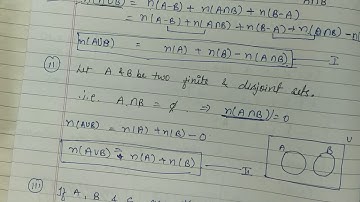 n(A∪B) = n(A-B) + n(A∩B) + n(B-A)
= n(A-B) + n(A∩B) + n(B-A) + n(A∩B) - n(
n(A∪B) = n(A) + n(B) - n(A∩B) I
(ii) Let A & B be two finite & disjoint sets.
i.e. A∩B = ϕ ⇒ n(A∩B) = 0
n(A∪B) = n(A) + n(B) - 0
n(A∪B) = n(A) + n(B) II
U
A B
(iii) If A, B & C